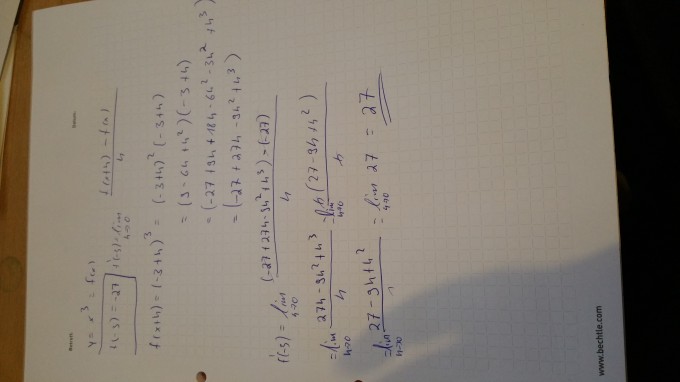 y = x³ = f(x)
f(-3) = -27 f'(-3) = lim h→0 (f(x+h) - f(x)) / h
f(x+h) = (-3+h)³ = (-3+h)² (-3+h)
= (9 - 6h + h²) (-3+h)
= (-27 + 9h + 18h - 6h² - 3h² + h³)
= (-27 + 27h - 9h² + h³)
f'(-3) = lim h→0 ((-27 + 27h - 9h² + h³) - (-27)) / h
= lim h→0 (27h - 9h² + h³) / h = lim h→0 h (27 - 9h + h²) / h
= lim h→0 27 - 9h + h² = lim h→0 27 = 27
www.bechtle.com